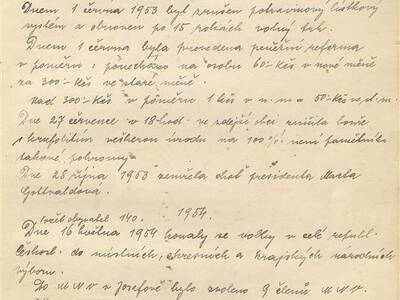 Dnem 1 června 1953 byl zrušen potravinový lístkový
systém a obnoven po 15 rokách volný trh.
Dnem 1 června byla provedena peněžní reforma
v poměru: ponecháno na osobu 60·- Kčs v nové měně
za 300·- Kčs ve staré měně.
nad 300·- Kčs v poměru 1 kčs v n. m = 50·- Kčs v s. d. m.
Dne 27 července v 18 hod. ve zdejší obci zničila bouře
s krupobitím veškerou úrodu na 100% není pamětníka
takové pohromy
Dne 28 října 1953 zemřela choť presidenta Marta
Gottvaldová.
Počet obyvatel 140. 1954.
Dne 16 května 1954 konaly se volby v celé republ.
Českosl. do místních, okresních a krajských národních
výborů.
Do M N V v Josefově bylo zvoleno 9 členů M N V.